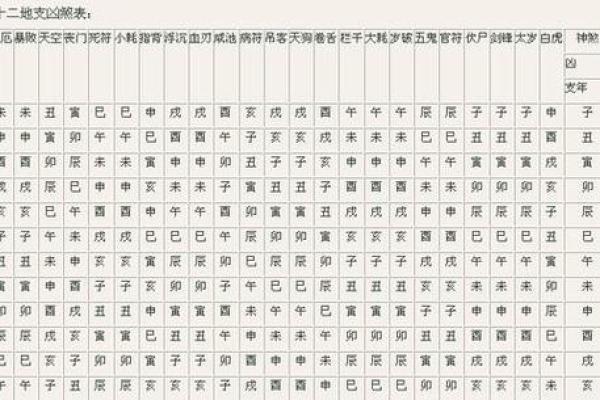 十二地支凶煞表：
厄 暴败 天空 丧门 死符 小耗 指背 浮沉 血刃 咸池 病符 吊客 天狗 卷舌 栏干 大耗 岁破 五鬼 官符 伏尸 剑锋 太岁 白虎 神煞
凶
支年
未 未 丑 寅 巳 巳 申 戌 戌 酉 亥 戌 戌 酉 午 午 午 辰 辰 子 子 子 申 子
申 申 寅 卯 午 午 巳 酉 酉 午 子 亥 亥 戌 未 未 未 巳 巳 丑 丑 丑 酉 丑
酉 酉 卯 辰 未 未 寅 申 申 卯 丑 子 子 亥 申 申 申 午 午 寅 寅 寅 戌 寅
戌 戌 辰 巳 申 申 亥 未 未 子 寅 丑 丑 子 酉 酉 酉 未 未 卯 卯 卯 亥 卯
亥 亥 巳 午 酉 酉 申 午 午 酉 卯 寅 寅 丑 戌 戌 戌 申 申 辰 辰 辰 子 辰
子 子 午 未 戌 戌 巳 巳 巳 午 辰 卯 卯 寅 亥 亥 亥 酉 酉 巳 巳 巳 丑 巳
丑 丑 未 申 亥 亥 寅 辰 辰 卯 巳 辰 辰 卯 子 子 子 戌 戌 午 午 午 寅 午
寅 寅 申 酉 子 子 亥 卯 卯 子 午 巳 巳 辰 丑 丑 丑 亥 亥 未 未 未 卯 未
卯 卯 酉 戌 丑 丑 申 寅 寅 酉 未 午 午 巳 寅 寅 寅 子 子 申 申 申 辰 申
辰 辰 戌 亥 寅 寅 巳 丑 丑 午 申 未 未 午 卯 卯 卯 丑 丑 酉 酉 酉 巳 酉
巳 巳 亥 子 卯 卯 寅 子 子 卯 酉 申 申 未 辰 辰 辰 寅 寅 戌 戌 戌 午 戌
午 午 子 丑 辰 辰 亥 亥 亥 子 戌 酉 酉 申 巳 巳 巳 卯 卯 亥 亥 亥 未 亥